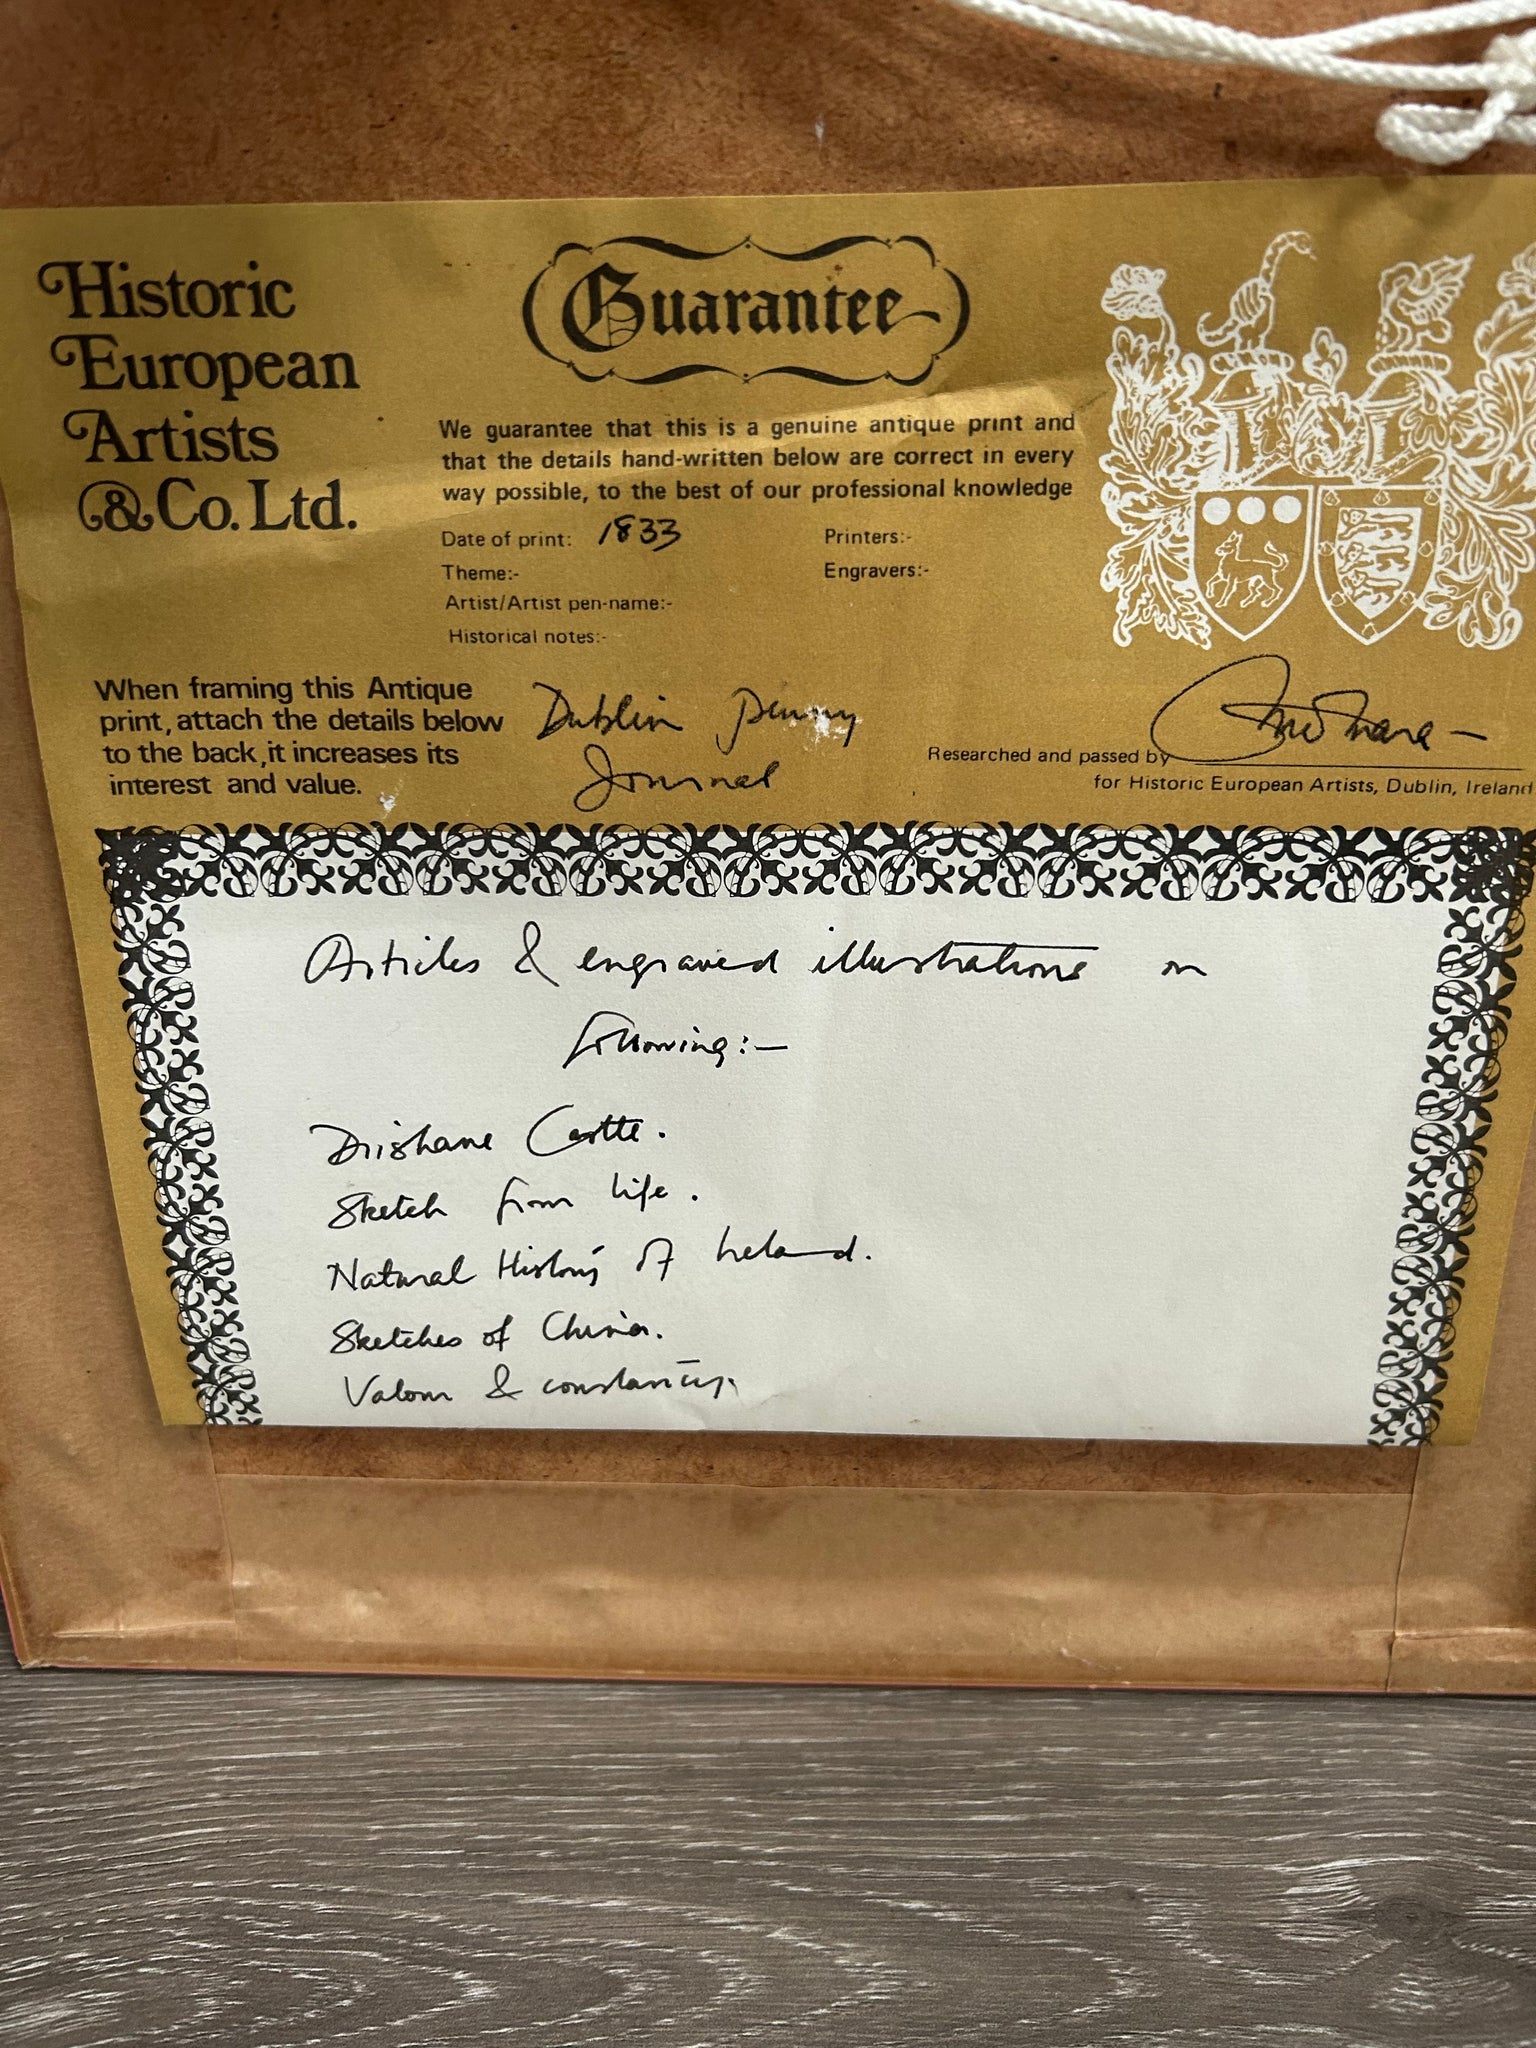 Historic
European
Artists
& Co. Ltd.
Guarantee
We guarantee that this is a genuine antique print and
that the details hand-written below are correct in every
way possible, to the best of our professional knowledge
Date of print: 1833
Printers:-
Theme:-
Engravers:-
Artist/Artist pen-name:-
Historical notes:-
When framing this Antique
print, attach the details below
to the back, it increases its
interest and value.
Dublin Penny
Journal
Researched and passed by
for Historic European Artists, Dublin, Ireland
Articles & engraved illustrations on
following:-
Drishane Castle.
Sketch from life.
Natural History of Ireland.
Sketches of China.
Valour & constancy.